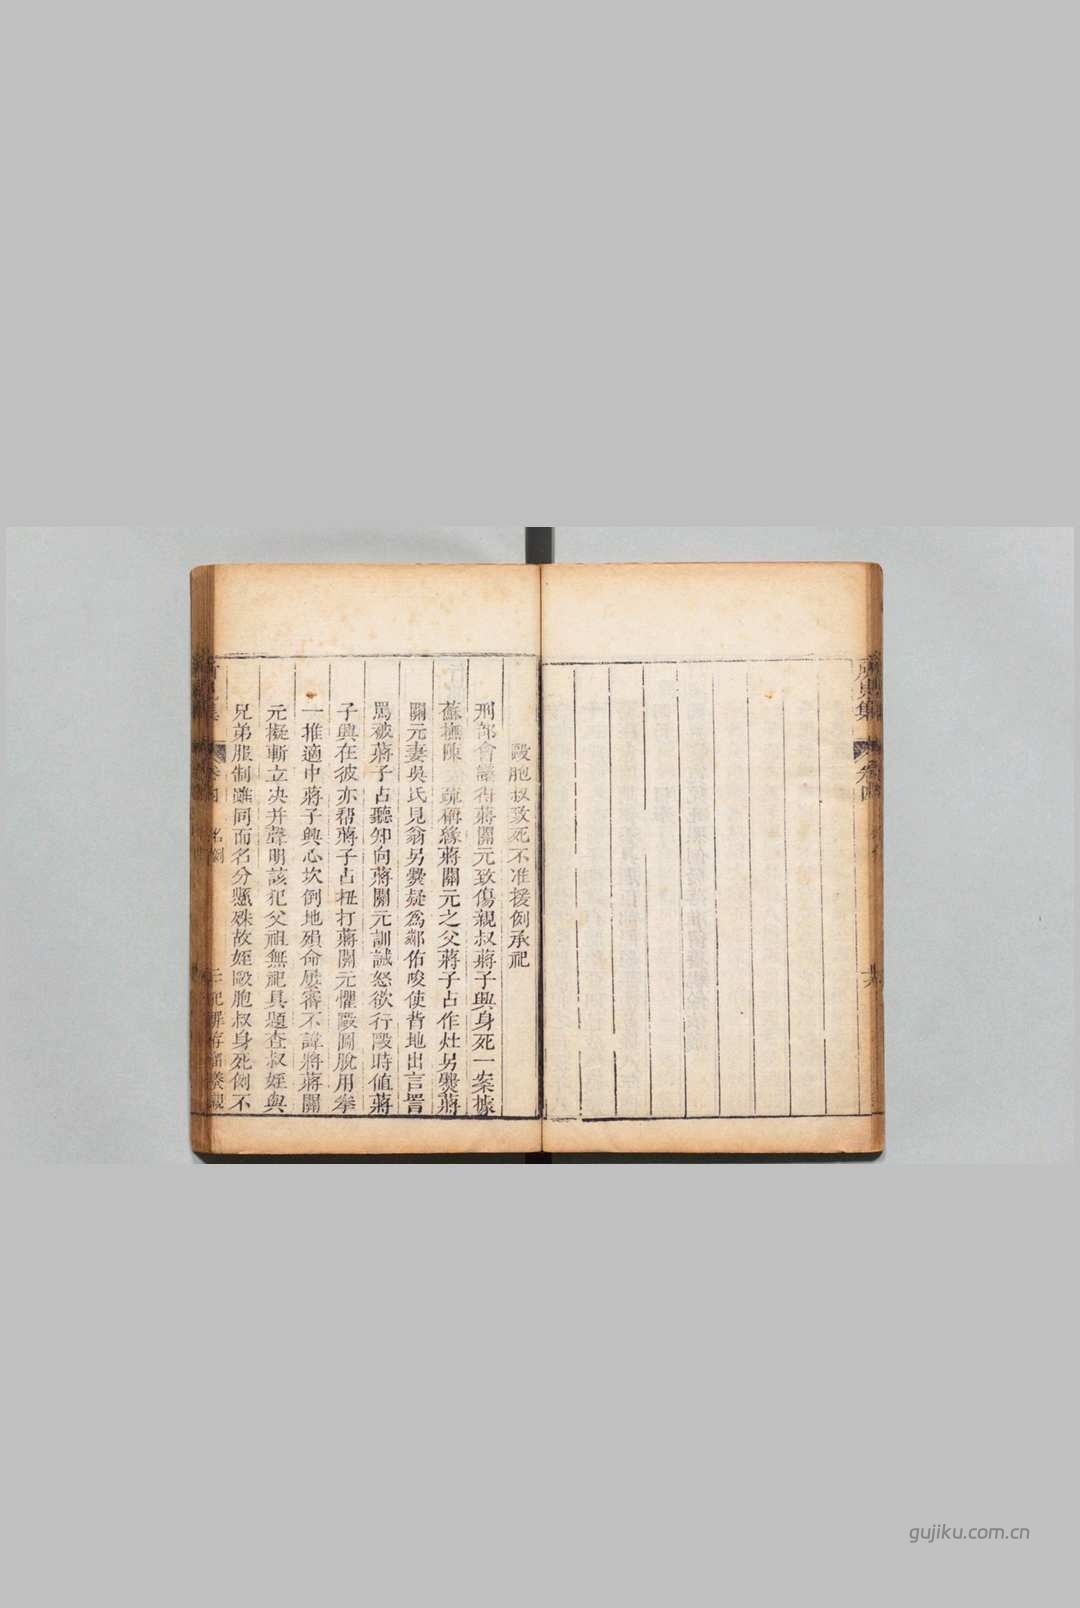 毆胞叔致死不准援例承祀
刑部會議得蔣關元致傷親叔蔣子興身死一案據
蘇撫陳 疏稱緣蔣關元之父蔣子占作灶另爨蔣
關元妻吳氏見翁另爨疑爲鄰佑唆使昔地出言詈
罵被蔣子占聽知向蔣關元訓誡怒欲行毆時值蔣
子興在彼亦帮蔣子占扭打蔣關元懼毆圖脫用拳
一推適中蔣子興心坎倒地殞命屢審不諱將蔣關
元擬斬立决并聲明該犯父祖無祀具題查叔姪與
兄弟服制雖同而名分懸殊故姪毆胞叔身死例不
卷四
名例
gujiku.com.cn